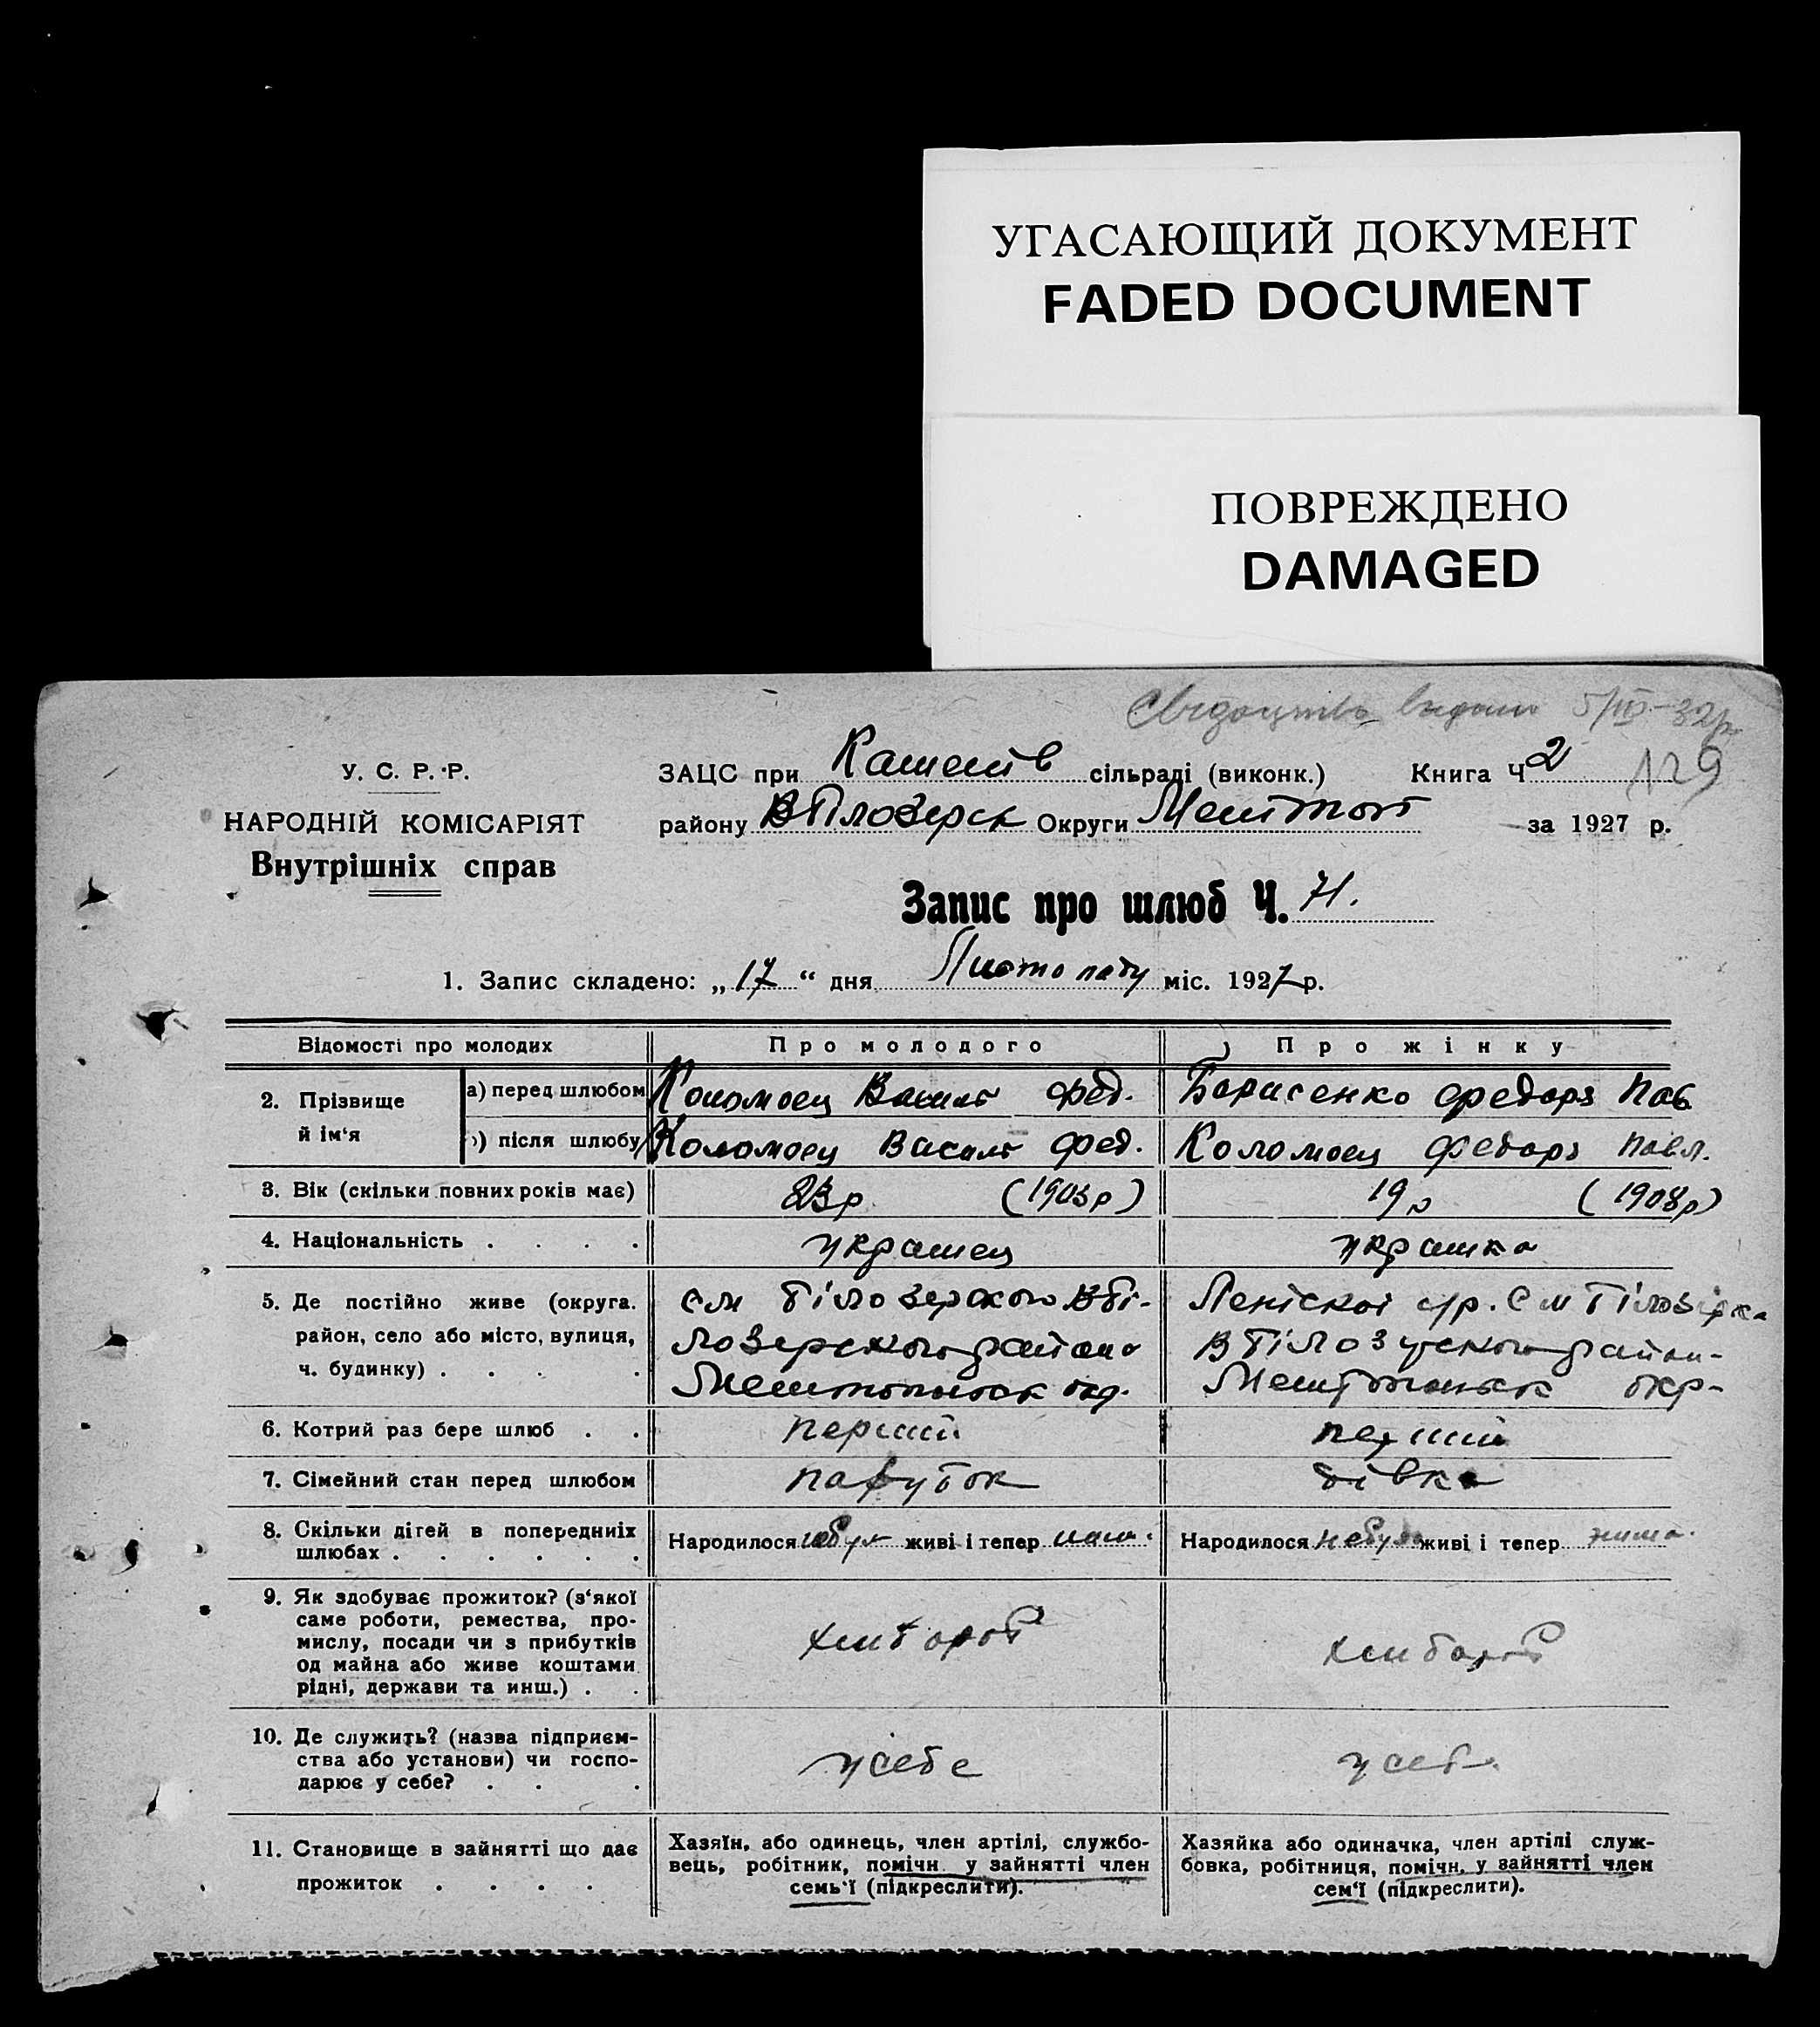 УГАСАЮЩИЙ ДОКУМЕНТ
FADED DOCUMENT
ПОВРЕЖДЕНО
DAMAGED
Свідоцтво видано 5/III-32р.
У. С. Р. Р.
НАРОДНІЙ КОМІСАРІЯТ
Внутрішніх справ
ЗАЦС при сільраді (виконк.) Книга Ч 2 129
району В Білозерск Округи Мелітоп за 1927 р.
Запис про шлюб Ч. 71.
1. Запис складено: „17“ дня Листопаду міс. 1927 р.
Відомості про молодих Про молодого Про жінку
2. Прізвище й ім‘я
а) перед шлюбом Коломоец Василь Фед. Борисенко Федора Пав
б) після шлюбу Коломоец Василь Фед. Коломоец Федора Павл.
3. Вік (скільки повних років має) 23р (1903р) 19р (1908р)
4. Національність . . . . украинец украинка
5. Де постійно живе (округа. район, село або місто, вулиця, ч. будинку) . . . .
см Білозерського В Бі-
лозерського района
Мелитопольск окр.
Леніскої с/р. см Білозірка
В Білозерского район-
Мелітопольск окр-
6. Котрий раз бере шлюб . . перший перший
7. Сімейний стан перед шлюбом парубок дівка
8. Скільки дітей в попередниіх шлюбах . . . . . .
Народилося небуло живі і тепер нема.
Народилося небуло живі і тепер нима.
9. Як здобуває прожиток? (з‘якої
саме роботи, ремества, про-
мислу, посади чи з прибутків
од майна або живе коштами
рідні, держави та инш.) . .
хлібороб
хлібороб
10. Де служить? (назва підприєм-
ства або установи) чи госпо-
дарює у себе? . . .
у себе
у себе
11. Становище в зайнятті що дає
прожиток . . . .
Хазяїн, або одинець, член артілі, службо-
вець, робітник, помічн. у зайнятті член
семь‘ї (підкреслити).
Хазяйка або одиначка, член артілі служ-
бовка, робітниця, помічн. у зайнятті член
сем‘ї (підкреслити).